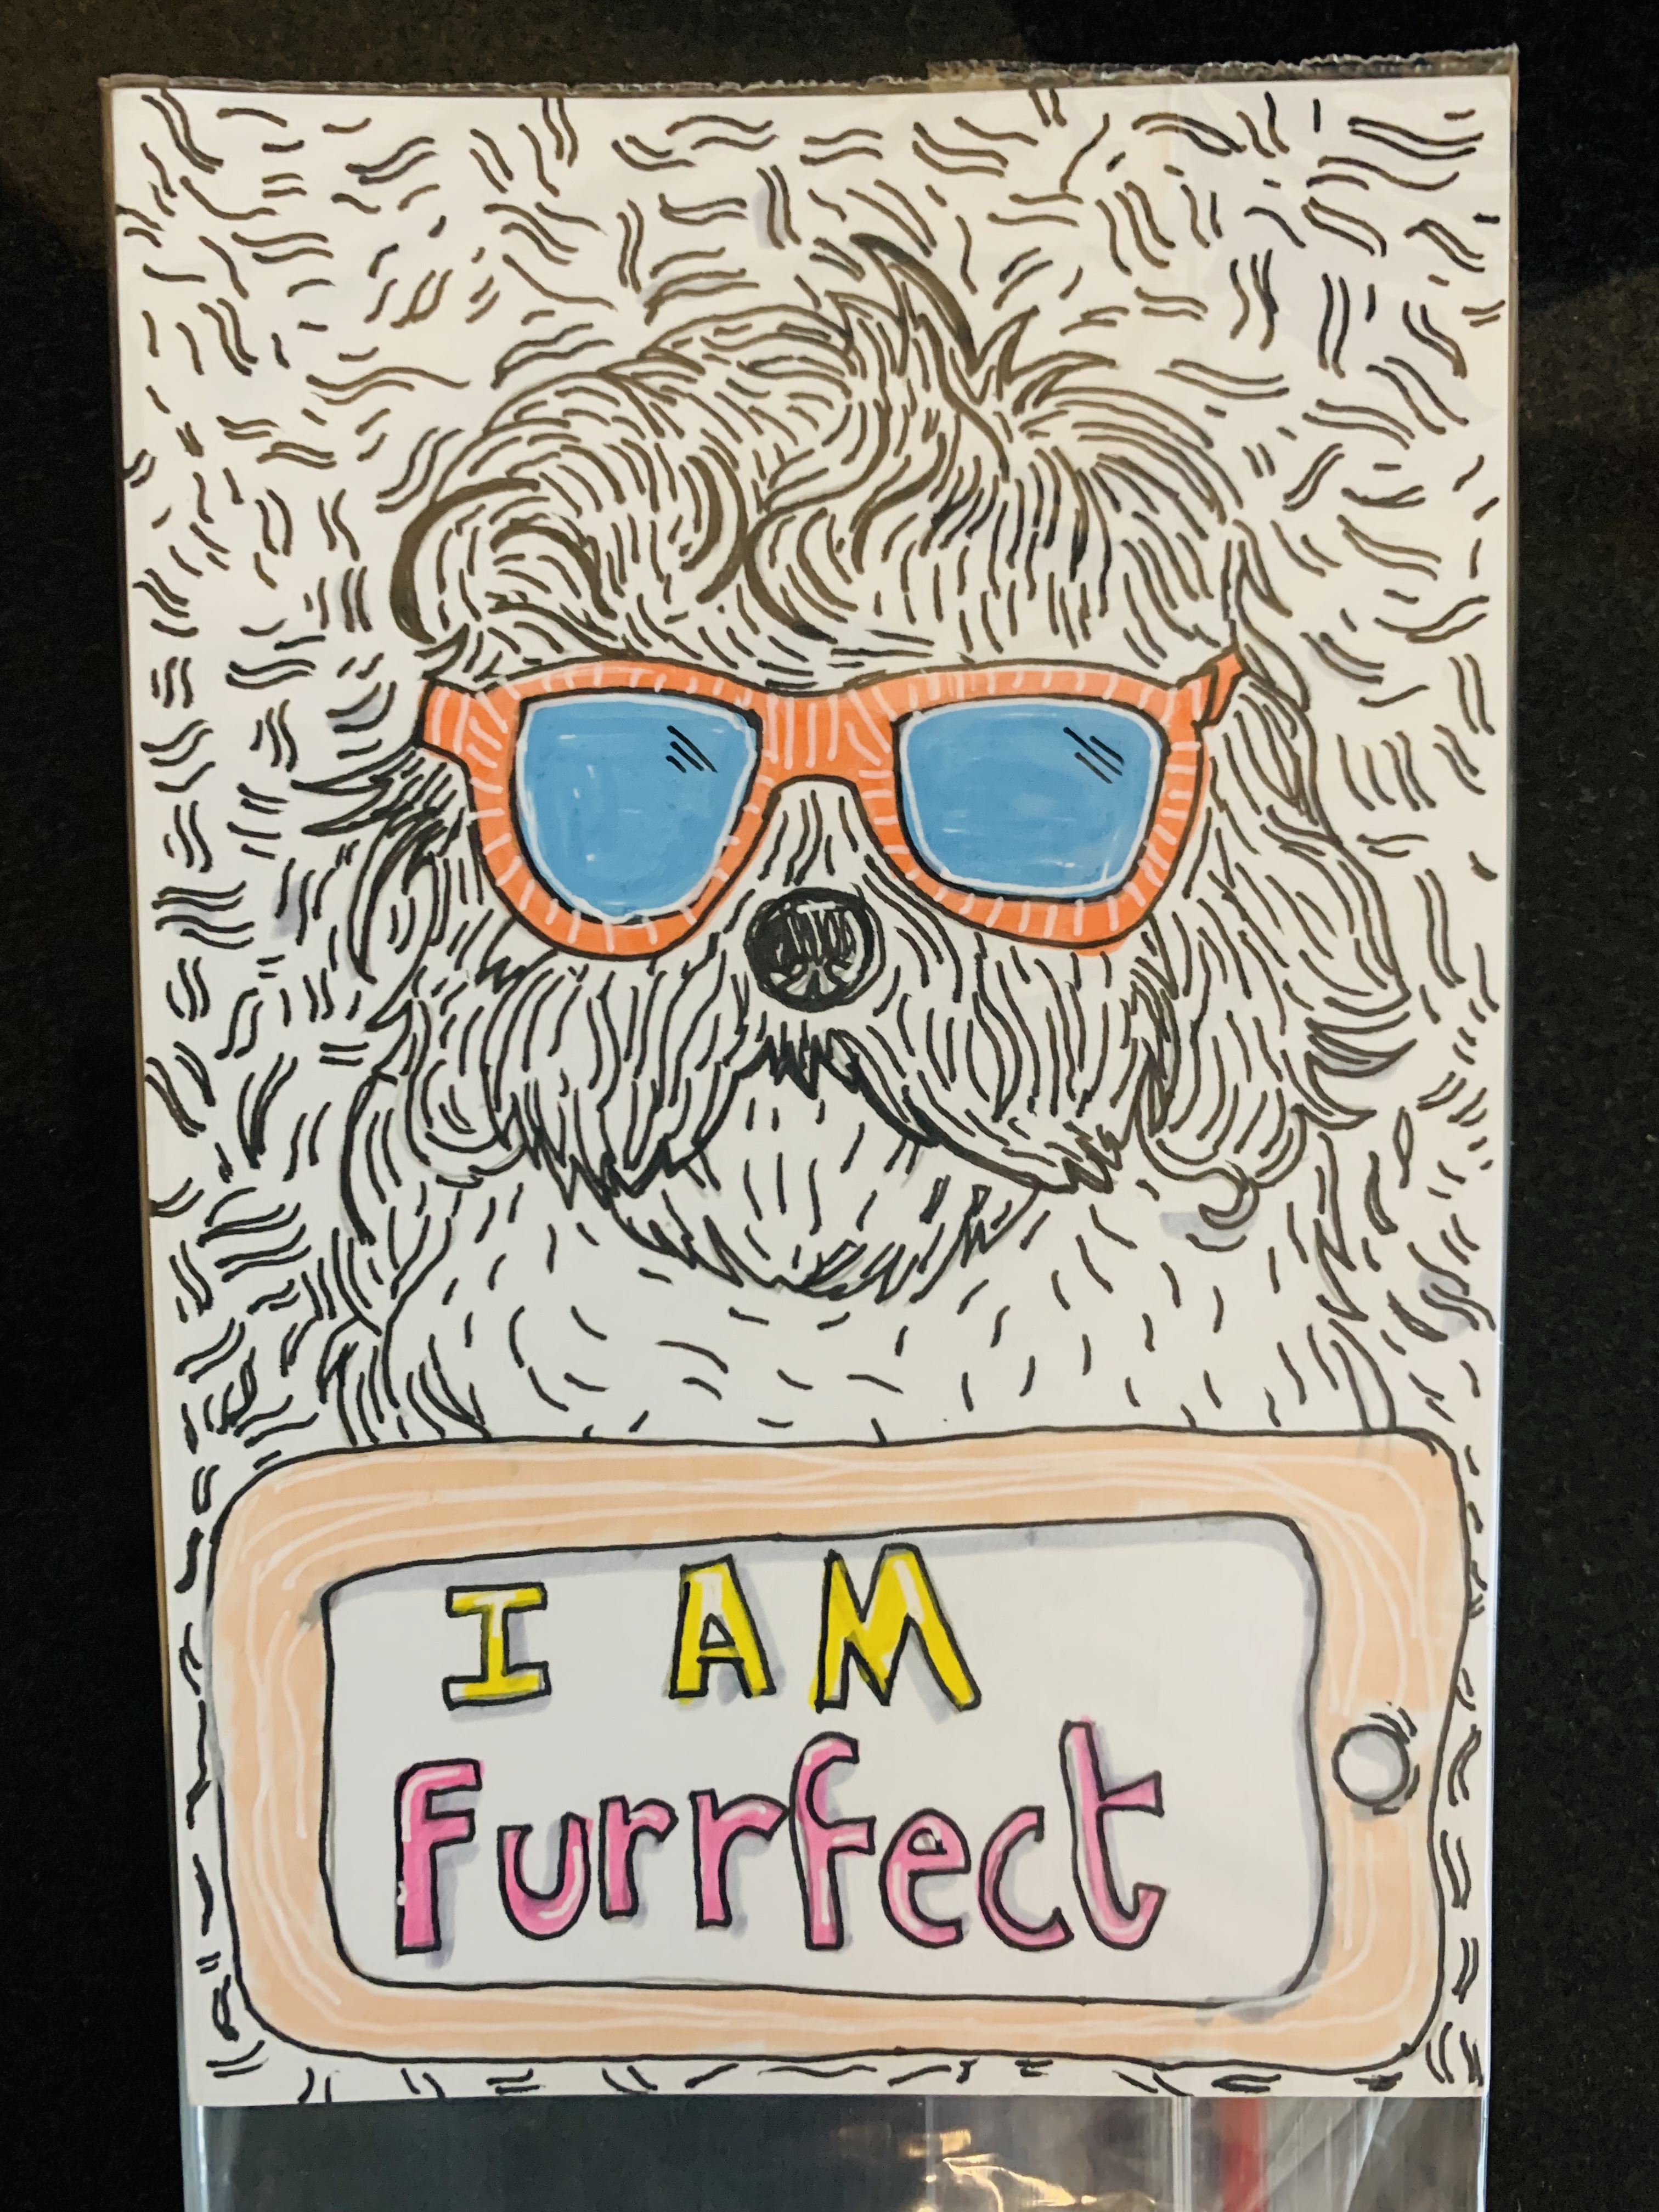 I AM
Furrfect